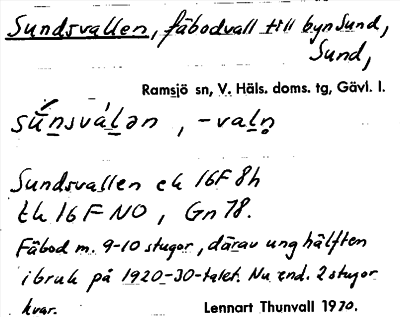 Sundsvallen, fäbodvall till byn Sund,
Sund,
Ramsjö sn, V. Häls. doms. tg, Gävl. l.
sŭ́n̲svál̲ən, -val̲n̥
Sundsvallen ek 16F 8h
tk 16 F NO, Gn 78.
Fäbod m. 9-10 stugor, därav ung hälften
i bruk på 1920-30-talet. Nu end. 2 stugor
kvar.
Lennart Thunvall 1970.